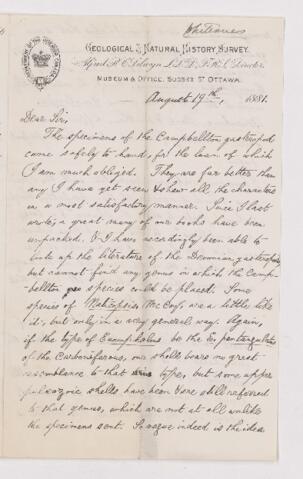 Whiteaves
GEOLOGICAL & NATURAL HISTORY SURVEY.
Alfred R. C. Selwyn L.L.D. F.R.S. Director
MUSEUM & OFFICE. SUSSEX ST OTTAWA.
August 19th, 1881.
Dear Sir,
The specimens of the Campbellton gasteropod
came safely to hand, for the loan of which
I am much obliged. They are far better than
any I have yet seen & shew all the characters
in a most satisfactory manner. Since I last
wrote, a great many of our books have been
unpacked, & I have accordingly been able to
look up the literature of the Devonian gasteropods
but cannot find any genus in which the Camp-
bellton species could be placed. Some
species of Naticopsis, Mc Coy, are a little like
it, but only in a very general way. Again,
if the type of Euomphalus be the E. pentangulatus
of the Carboniferous, our shells bear no great
resemblance to that type, but some upper
palæozoic shells have been & are still referred
to that genus, which are not at all unlike
the specimens sent. So vague indeed is the idea